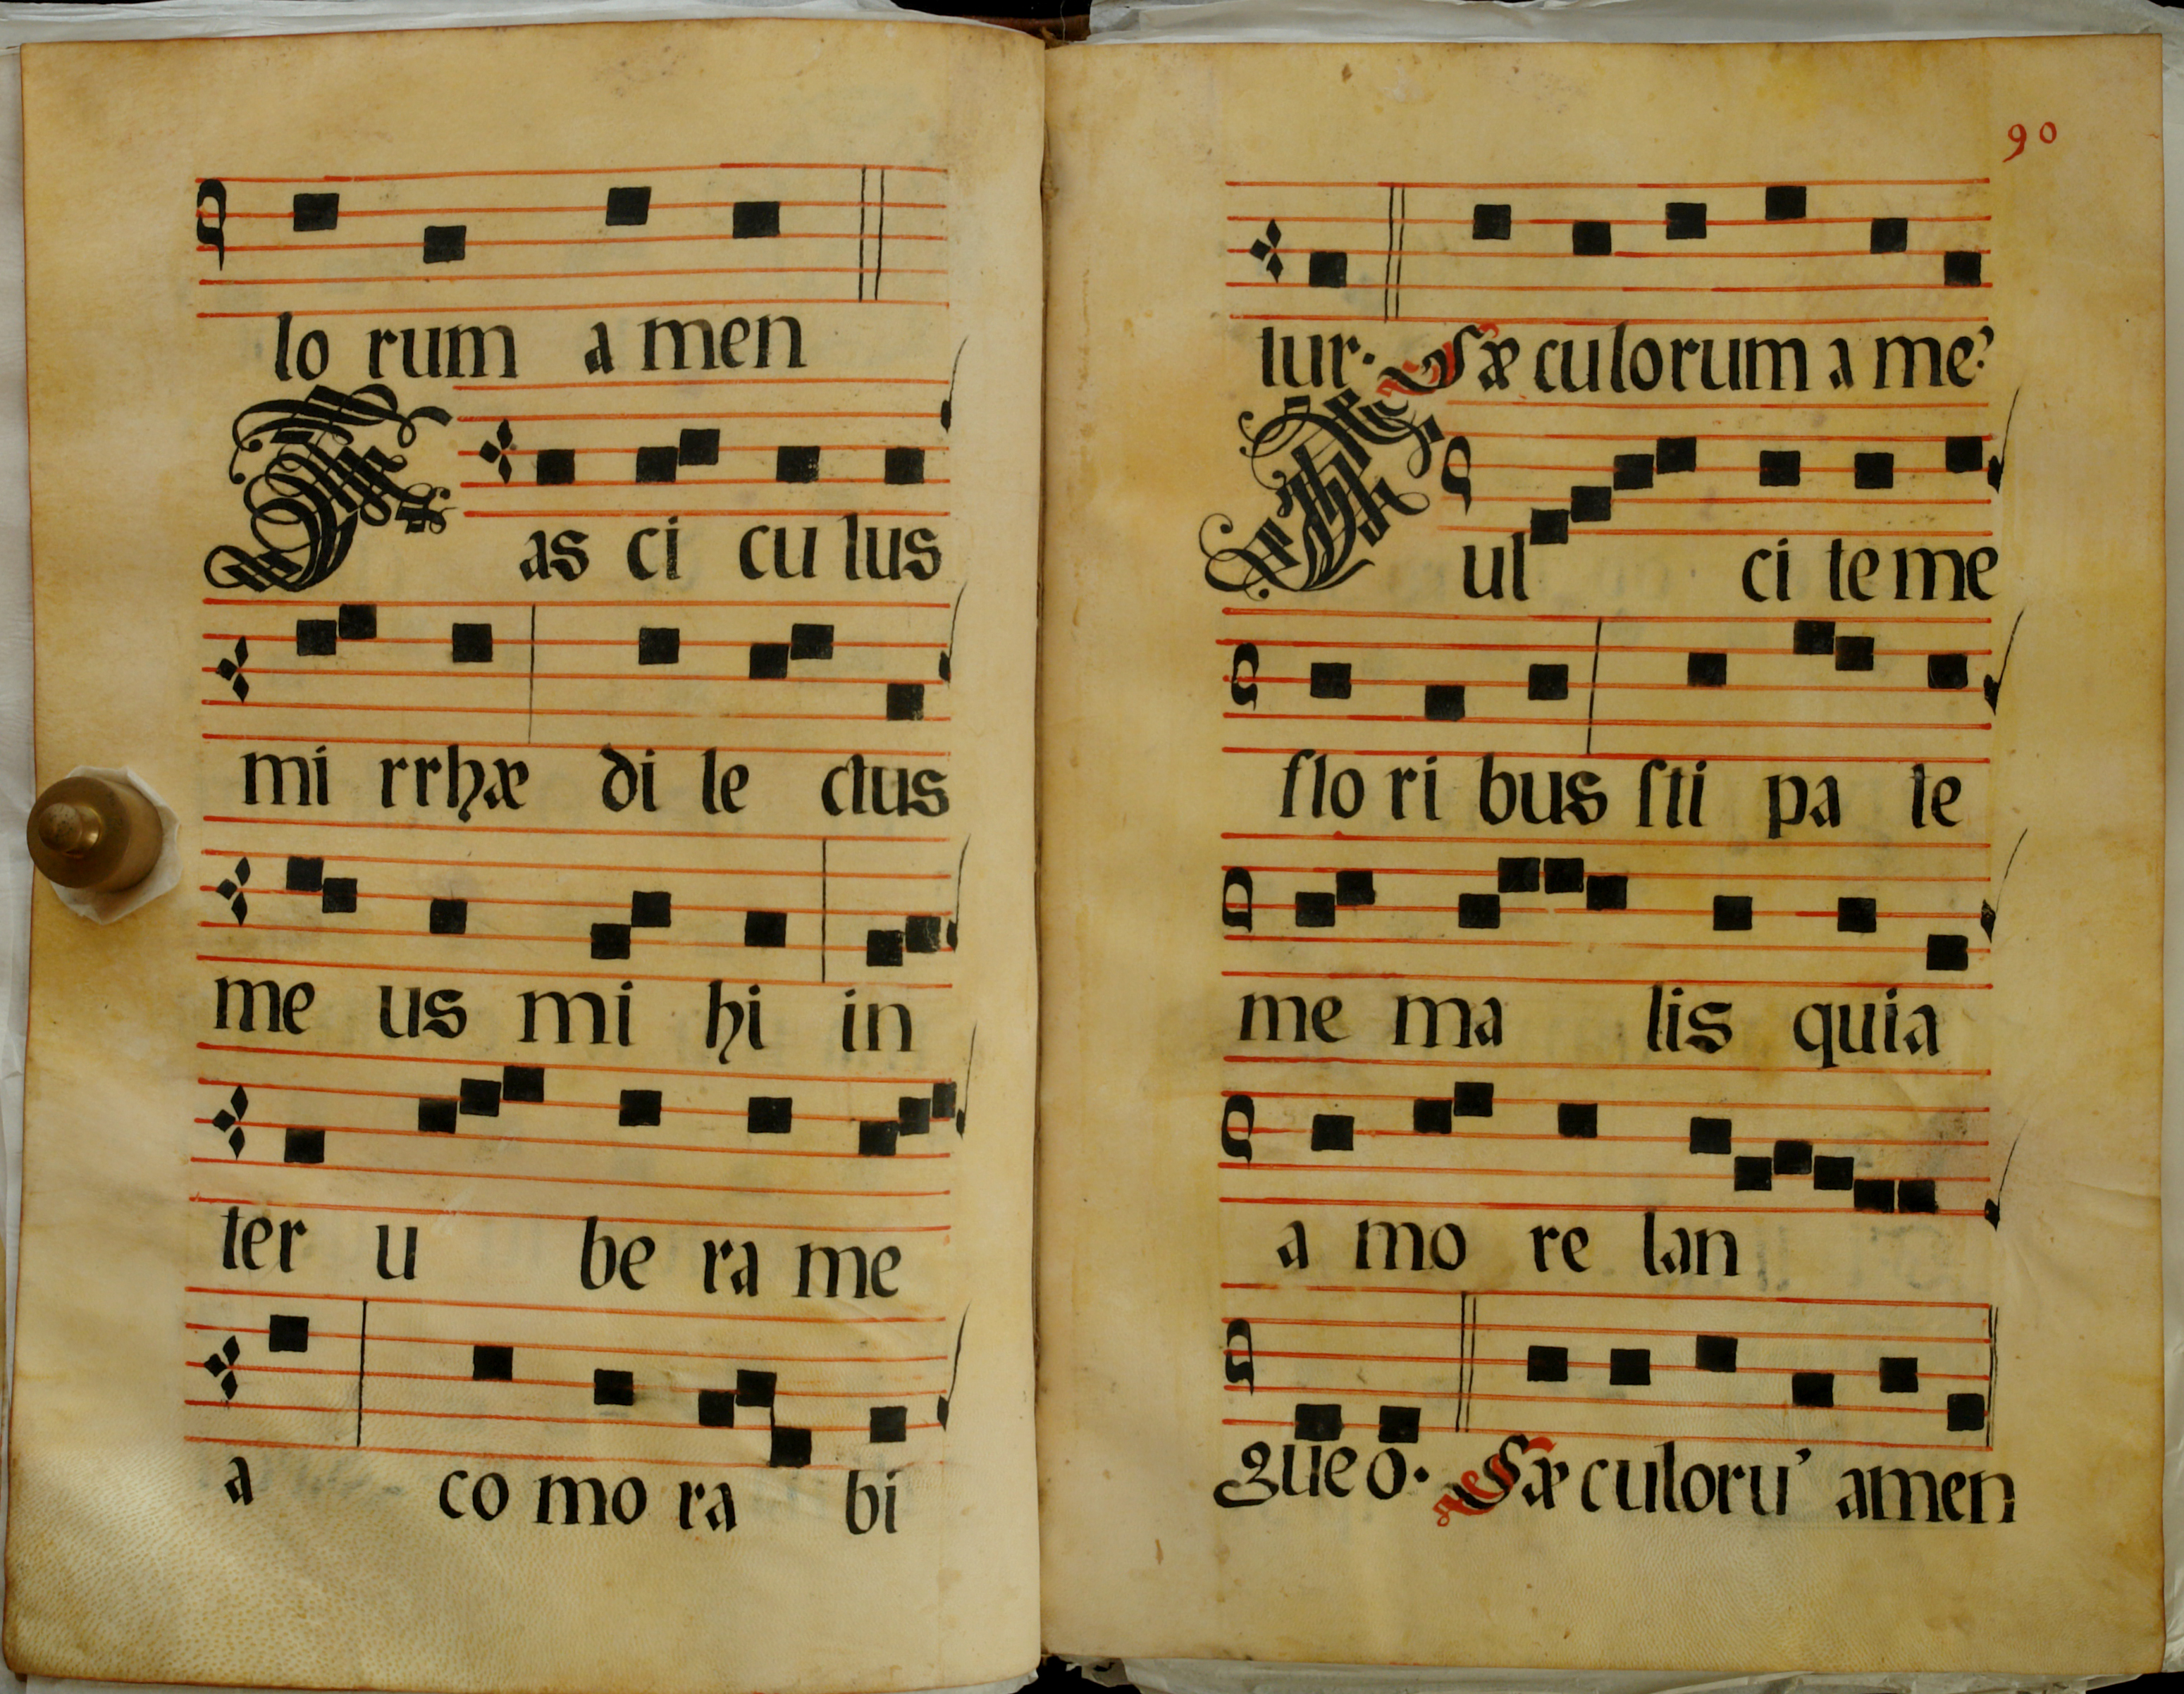 lo rum a men
Fas ci cu lus
mi rrhæ di le ctus
me us mi hi in
ter u be ra me
a co mo ra bi
90
tur. Sæ culorum a me?
Ful ci te me
flo ri bus ſti pa te
me ma lis quia
a mo re lan
gue o. Sæ culoru' amen